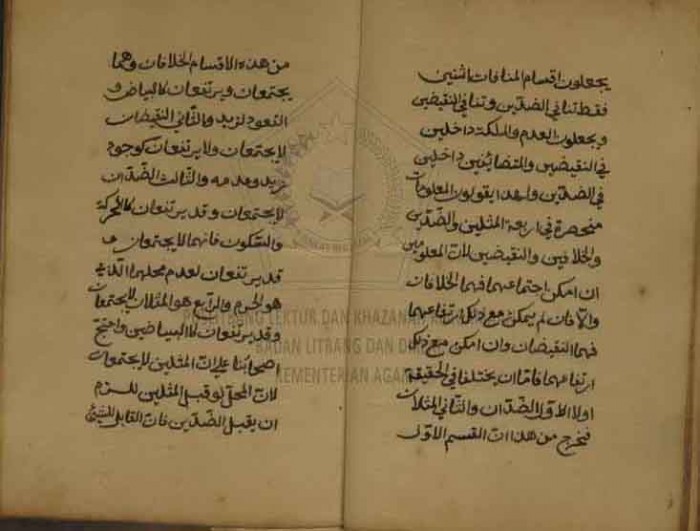 يجعلون اقسام المنافات اثنين
فقط تنافي الضدين وتنافي النقيضين
ويجعلون العدم والملكة داخلين
في النقيضين والمتضائفين داخلين
في الضدين ولهذا يقولون المعلومات
منحصرة في اربعة المثلين والضدين
والخلافين والنقيضين لان المعلومين
ان امكن اجتماعهما فهما الخلافان
والا فان لم يمكن مع ذلك ارتفاعهما
فهما النقيضان وان امكن مع ذلك
ارتفاعهما فاما ان يختلفا في الحقيقة
اولا الاول الضدان والثاني المثلان
فخرج من هذا ان القسم الاول
من هذه الاقسام الخلافان وهما
يجتمعان ويرتفعان كالبياض و
القعود لزيد والثاني النقيضان
لا يجتمعان ولا يرتفعان كوجود
زيد وعدمه والثالث الضدان
لا يجتمعان وقد يرتفعان كالحركة
والسكون فانهما لا يجتمعان و
قد يرتفعان لعدم محلهما الذي
هو الجرم والرابع هو المثلان لا يجتمعان
وقد يرتفعان كالبياضين واحتج
اصحابنا على ان المثلين لا يجتمعان
لان المحل لو قبل المثلين للزم
ان يقبل الضدين فان القابل للشيئ
PUSLITBANG LEKTUR DAN KHAZANAH
BADAN LITBANG DAN
KEMENTERIAN AGAMA